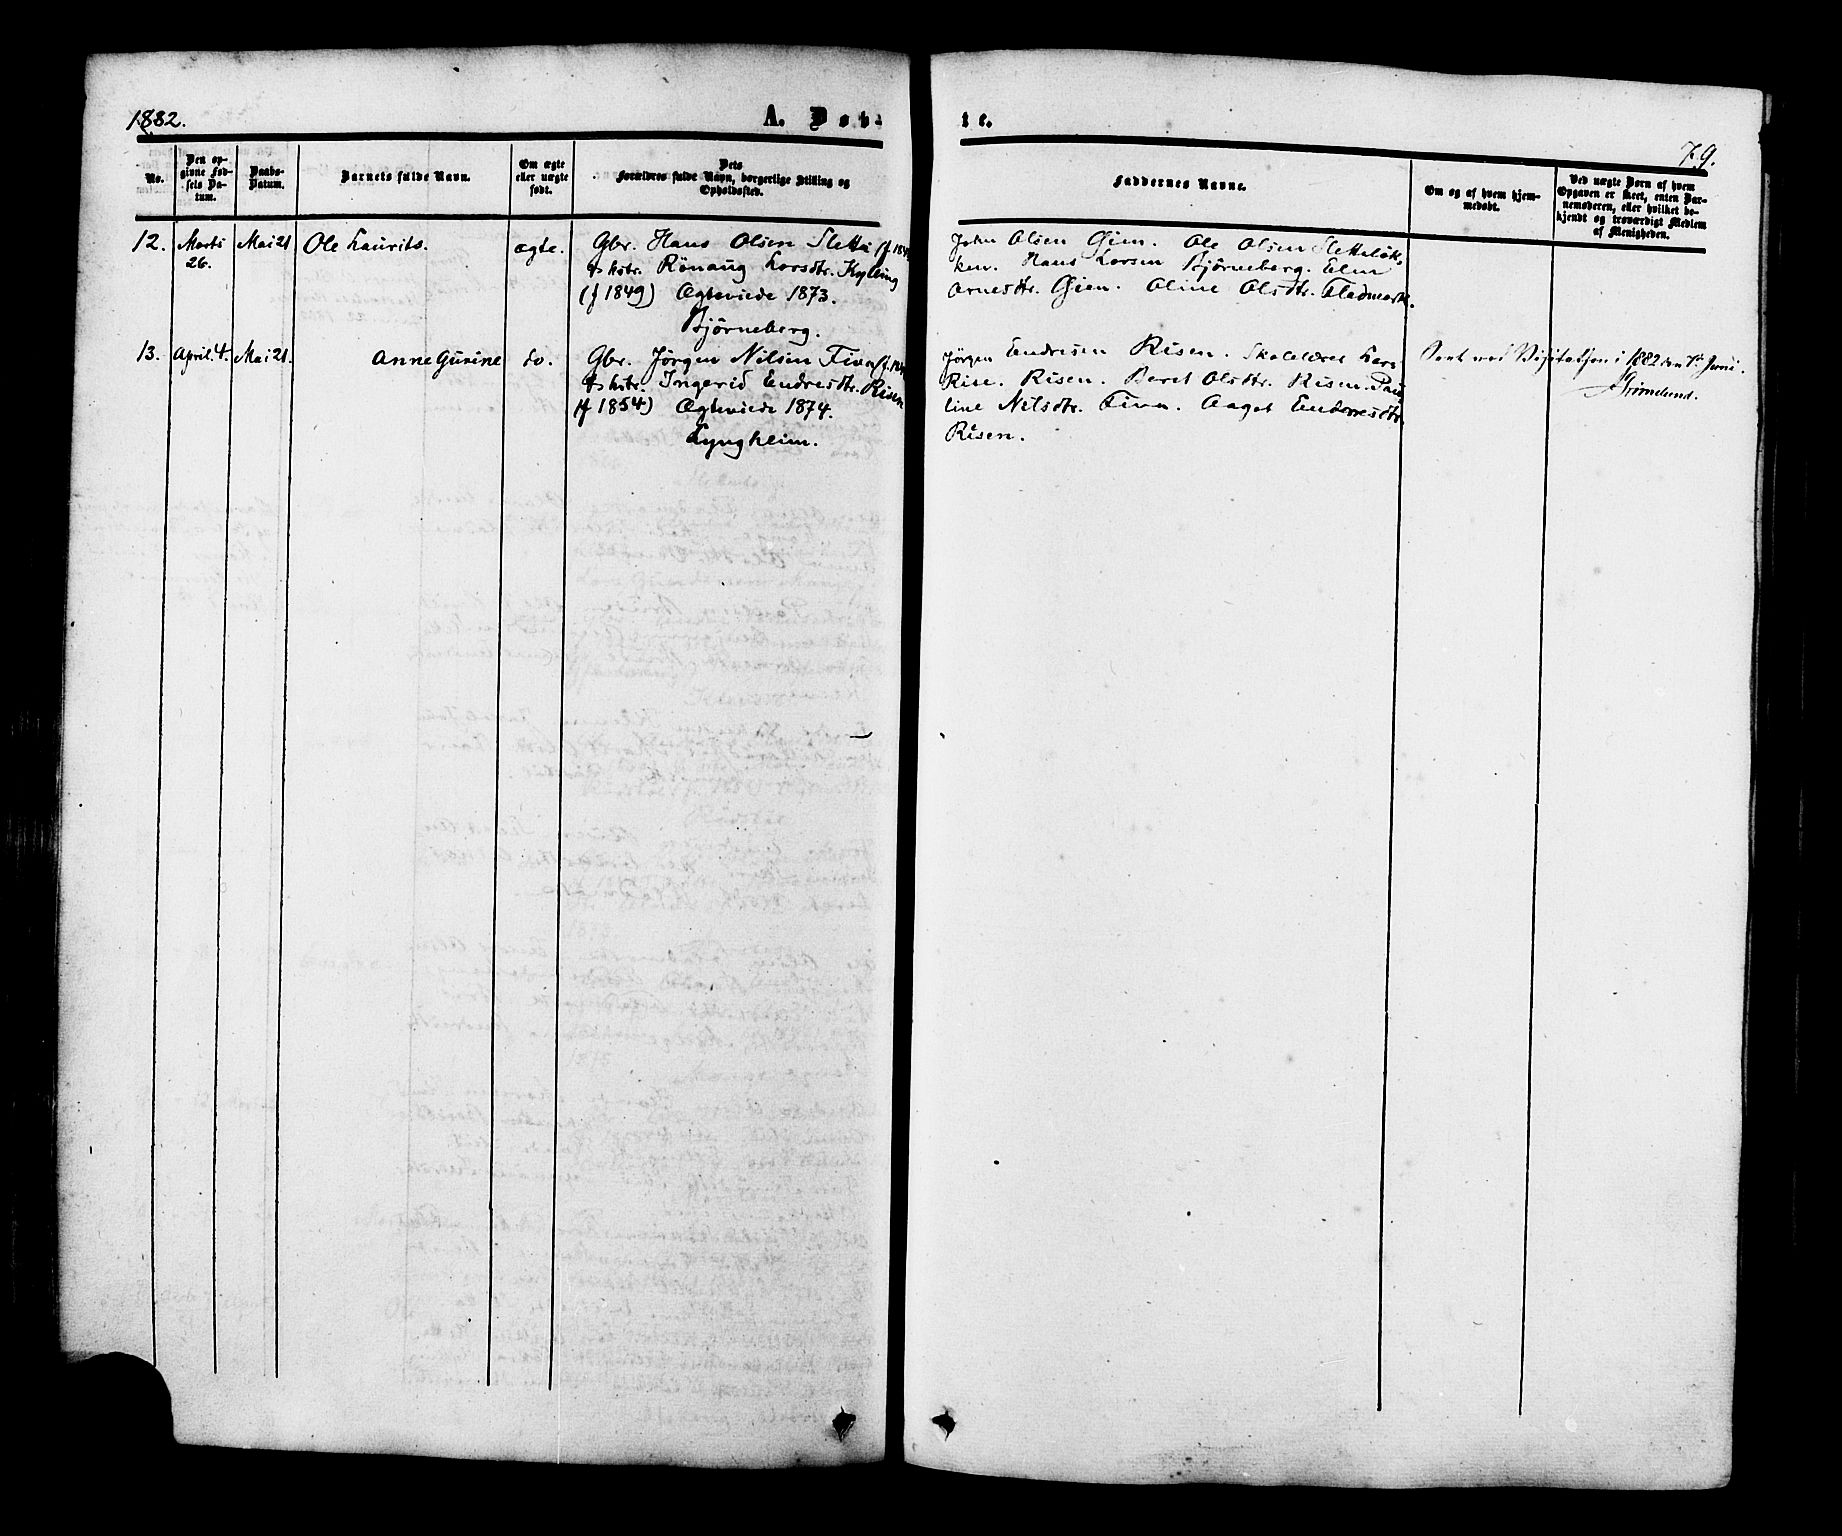 1882.
A. Døb-
te.
79.
No.
Den op-
givne Fød-
sels Da-
tum.
Daabs-
Datum.
Barnets fulde Navn.
Om ægte
eller uægte
født.
Dets
Forældres fulde Navn, borgerlige Stilling og
Opholdssted.
Faddernes Navne.
Om og af hvem hjem-
medøbt.
Ved uægte Børn af hvem
Opgaven er skeet, enten Bar-
nemoderen, eller hvilket be-
kjendt og troværdigt Medlem
af Menigheden.
12. Marts Mai 21 Ole Laurits. ægte. Gbr. Hans Olsen Slette
26. & hstr. Rönaug Larsdtr. Kylling
(f 1849) Ægteviede 1873.
Bjørneberg.
John Olsen Gjen. Ole Olsen Sletteløk-
ken. Hans Larsen Bjørneberg. Elen
Arnesdtr. Gjen. Oline Olsdtr. Fladmark.
13. April. 4. Mai 21. Anne Gurine do. Gbr. Jørgen Nilsen Fiva
& hstr. Ingerid Endresdtr. Risen
(f 1854) Ægteviede 1874.
Lyngheim.
Jørgen Endresen Risen. Skolelærer Lars
Rise. Risen. Beret Olsdtr. Risen. Pau
line Nilsdtr. Fiva. Aagot Enderesdtr.
Risen.
Seet ved Visitatsen i 1882 den 7de Juni.
Grimelund.